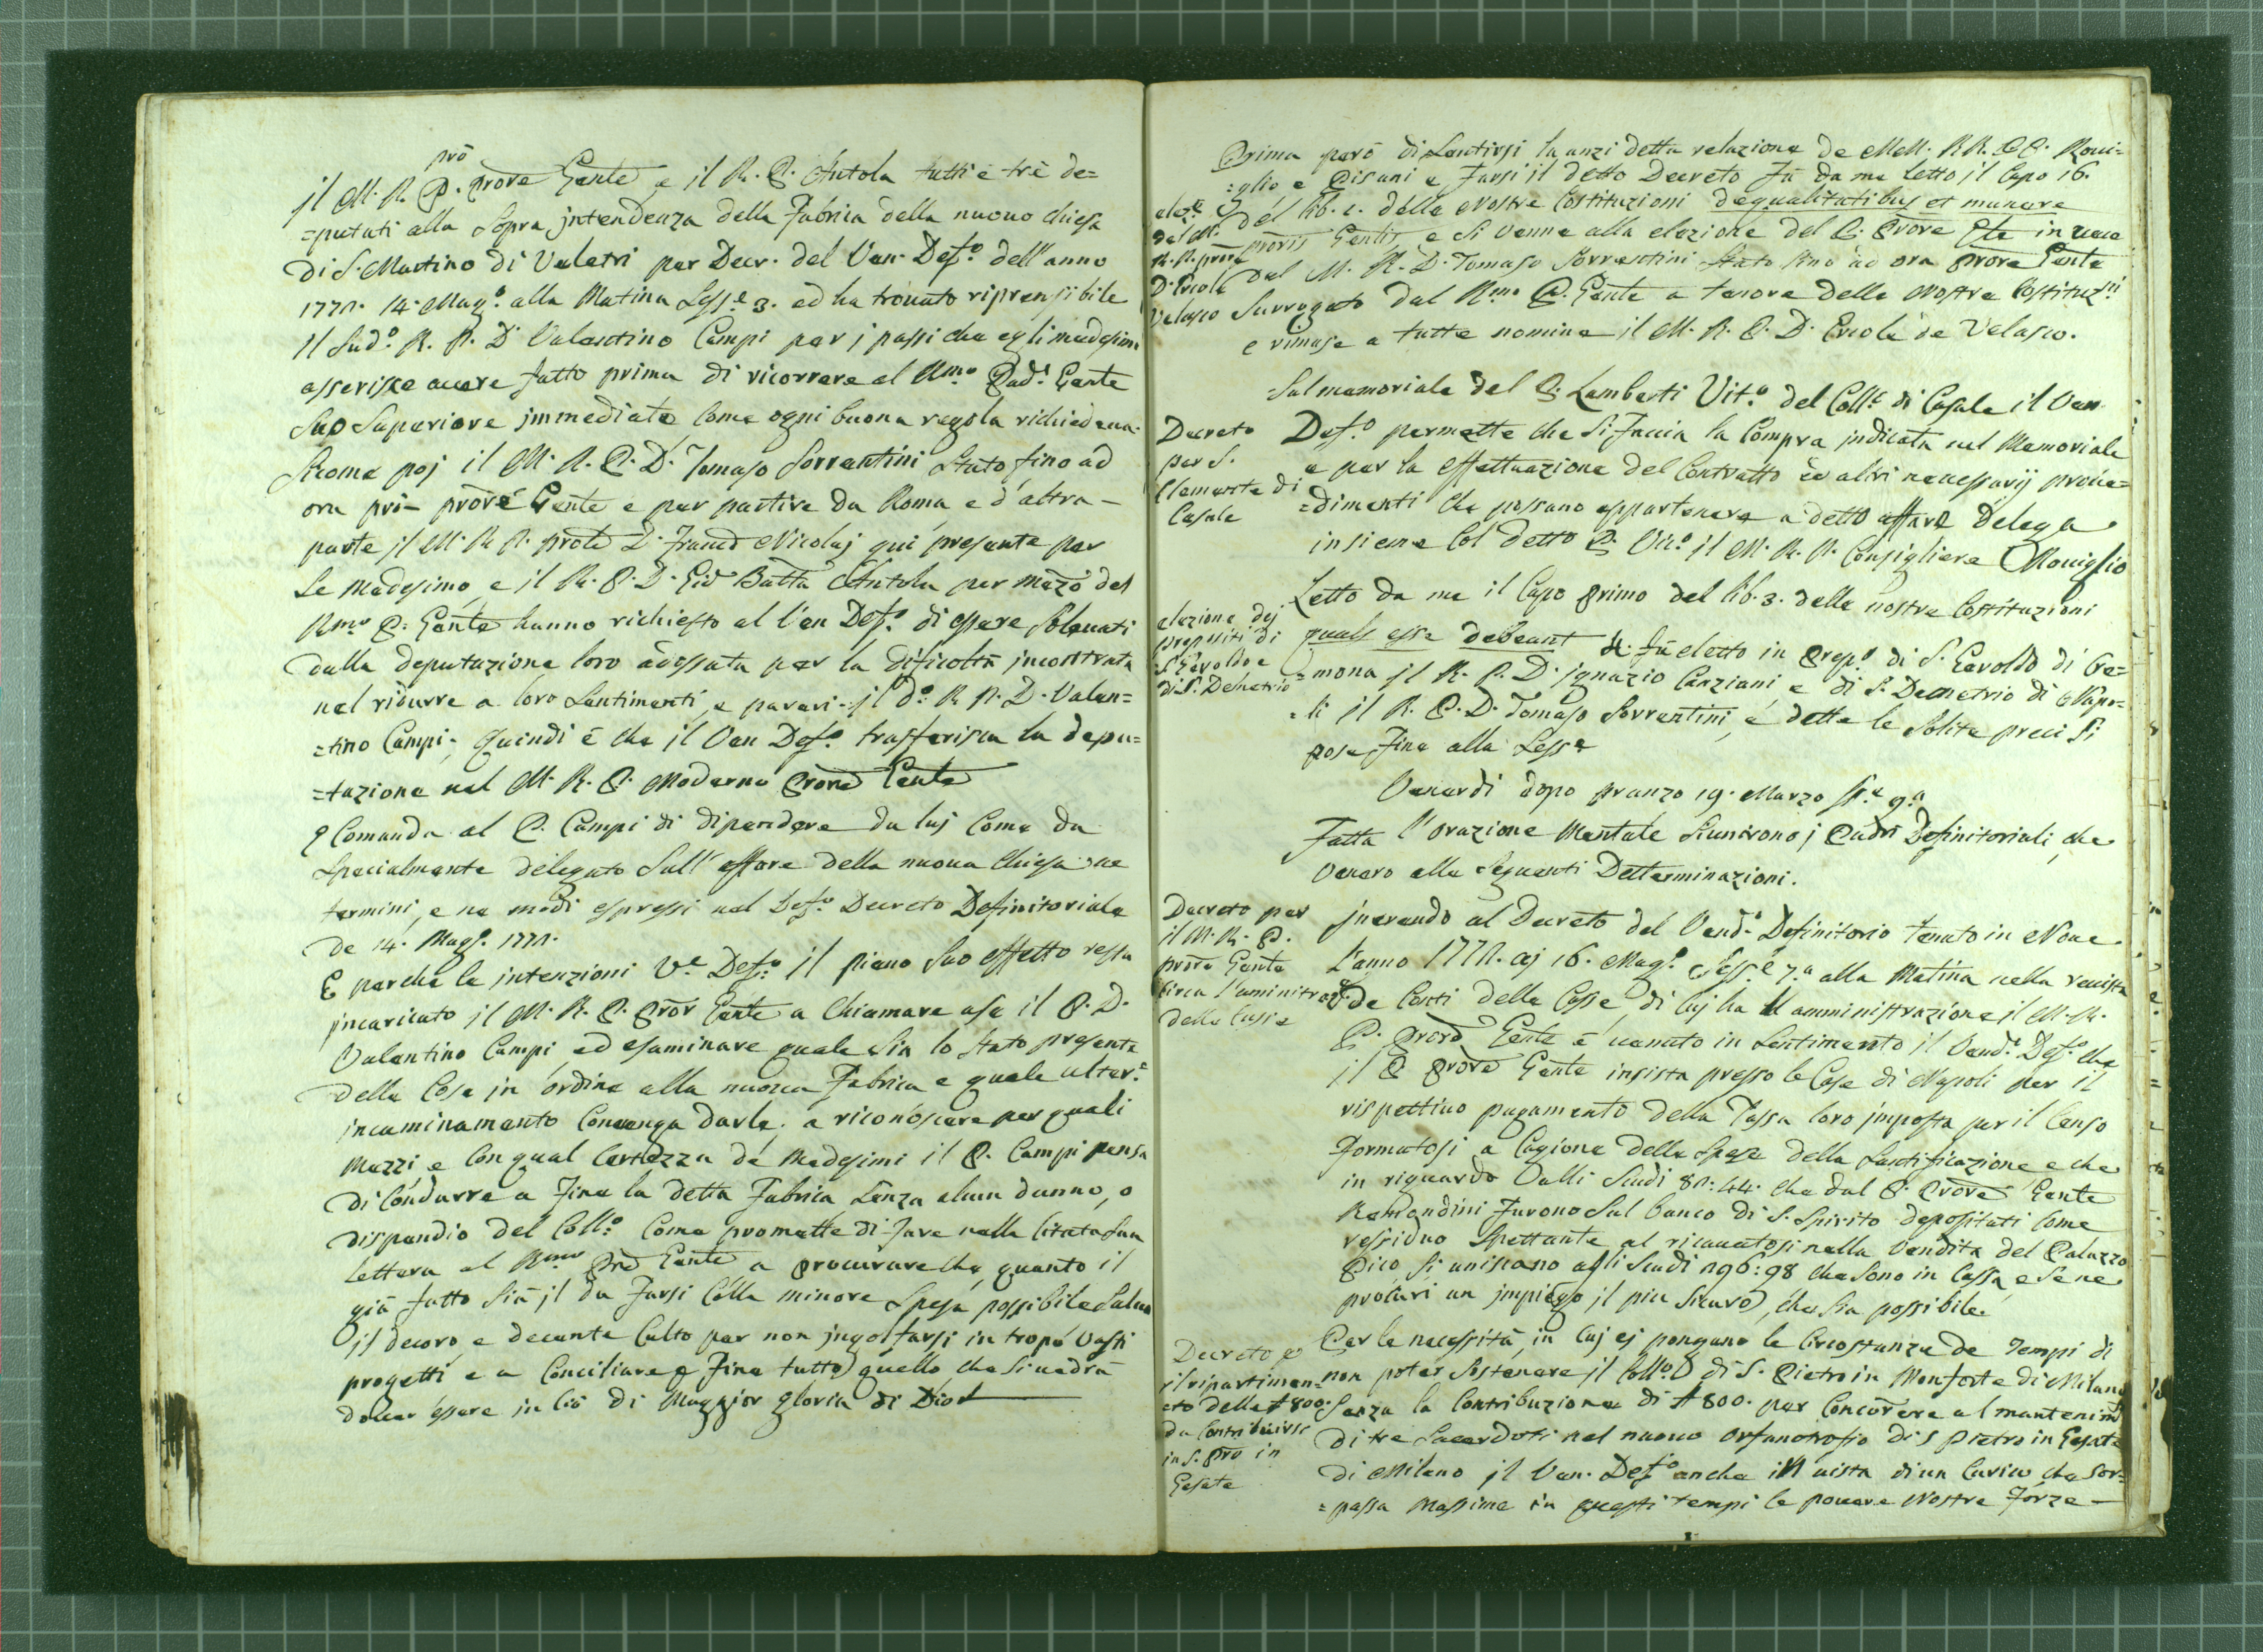 prõ
jl M. R. P. Prõre Gente, e il R. P. Antola tutti e tré de=
=putati alla sopra jntendenza della Fabrica della nuova chiesa
di S. Martino di Veletri per Decr. del Ven. Defo. dell'anno
14. Mago. alla Matina Sesse. 3. ed ha trovato riprensibile
il sudo. R. P. D. Valentino Campi per j passi che egli medesimo
asserisce avere fatto prima di ricorrere al Rmo Padr. Gente
suo Superiore jmmediato come ogni buona regola richiedeva.
Siccome poj il M. R. P. D. Tomaso Sorrentini stato fino ad
ora pri- prõre Gente e per partire da Roma e d'altra-
parte jl M. R. P. D. Nicolaj qui presente per
se medesimo, e il R. P. D. Gio Batta Antola per mezo del
Rmo P. Gente hanno richiesto al Ven Defo. di essere solevati
dalla deputazione loro adossata per la dificoltà jncontrata
nel ridurre a loro sentimenti, e pareri jl do. R. P. D. Valen=
=tino Campi; quindi è che il Ven Defo. trasferisca la depu=
=tazione nel M. R. P. Moderno Prore Gente
e Comanda al P. Campi di dipendere da luj come da
specialmente delegato sull'affare della nuova Chiesa ne
termini, e ne modi espressi nel Decreto Definitoriale
de 14. Mago.
E perche le jntenzioni Ve. Defo. il pieno suo effetto resta
jncaricato jl M. R. P. Prõr Gente a chiamare a se il P. D.
Valentino Campi ed esaminare quale sia lo stato presente
delle Cose jn ordine alla nuova Fabrica e quale ulter.e
incaminamento convenga darle. a riconoscere per quali
Mezzi, e con qual certezza de Medesimi il P. Campi pensa
di condurre a fine la detta Fabrica senza alcun danno, o
dispendio del Collo. come promette di fare nella citata sua
lettera al Rmo Pre Gente a procurare che quanto il
già fatto sia jl da farsi colla minore spesa possibile salvo
il decoro, e decente Culto per non jngolfarsi in tropo vasti
progetti e a conciliare a fine tutto quello che si vedrà
dover essere in ciò di Maggior gloria di Dio
Prima però di sentirsi la anzi detta relazione de MM. RR. PP. Rovi=
=glio e Pisani e farsi il detto Decreto fu da me letto il Capo 16.
del lib. 1. delle Nostre Costituzioni de qualitatibus et munere
proris Gentis e si venne alla elezione del P. Prõre Gte in vece
del M. R. D. Tomaso Sorrentini stato sino ad ora Prore Gente
surrogato dal Rmo P. Gente a tenore delle Nostre Costituzni
e rimase a tutte nomine il M. R. P. D. Ercole de Velasco.
elezne
del M.
R. P. prore
D Ercole
Velasco
Sul memoriale del P. Lamberti Vito. del Colle. di Casale il Ven
Defo. permette che si faccia la compra jndicata nel Memoriale
e per la effettuazione del Contratto ed altri necessarij prove=
=dimenti che possano appartenere a detto affare delega
insieme col detto P. jl M. R. P. Consigliere Roviglio
Decreto
per S.
Clemente di
Casale
Letto da me il Capo Primo del lib. 3. delle nostre Costituzioni
quales esse debeant &. fù eletto in Prepo. di S. Geroldo di Cre=
=mona jl R. P. D. Ignazio Canziani, e di S. Demetrio di Napo=
=li jl R. P. D. Tomaso Sorrentini, e dette le solite preci si
pose fine alla Sesse
elezione dej
prepositi di
S. Geroldo e
di S. Demetrio
Venerdi dopo pranzo 19. Marzo Se. 9.a
Fatta l'orazione Mentale si unirono j Padri Definitoriali, che
venero alle seguenti Detterminazioni.
Jnerendo al Decreto del Vend. Definitorio tenuto in Nove
l'anno aj 16. Mago. Sesse. 7.a alla Matina nella revista
de Conti delle Casse, di cuj ha l'amministrazione il M. R.
P. Prore Gente è venuto in sentimento il Vend. Defo. che
il P Prõre Gente insista presso le Case di Napoli per il
rispettivo pagamento della Tassa loro jmposta per il Censo
formatosi a cagione delle spese della Santificazione e che
in riguardo Dalli Scudi 80:44. che dal P. Prõre Gente
Remondini furono sul banco di S. Spirito depositati come
residuo spettante al ricavatosi nella vendita del Palazzo
Pico si uniscano agli Scudi 196:98 che sono in Cassa, e se ne
procuri un jmpiego jl piu sicuro, che sia possibile.
Decreto per
il M. R. P.
prore Gente
circa l'aministrazne
delle Casse
Per le necessità, in cuj ej pongano le Circostanze de Tempi di
non poter sostenere jl Collo. di S. Pietro in Monforte di Milano
senza la Contribuzione di # 800. per concorere al mantenimto
di tre Sacerdoti nel nuovo orfanotrofio di S Pietro in Gesate
di Milano jl Ven. Defo. anche in vista di un Carico che sor=
=passa Massime in questi tempi le povere Nostre Forze-
Decreto p
il ripartimen=
eto delle # 800.
da contribuirsi
in S. Pro in
Gesate